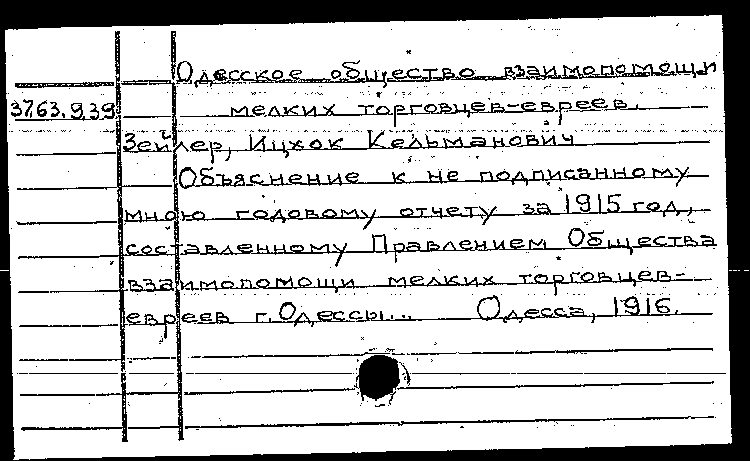 Одесское общество взаимопомощи
3763.939 мелких торговцев-евреев.
Зейлер, Ицхок Кельманович
Объяснение к не подписанному
мною годовому отчету за 1915 год,
составленному Правлением Общества
взаимопомощи мелких торговцев-
евреев г.Одессы... Одесса, 1916.